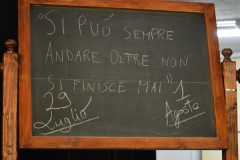 "SI PUÓ SEMPRE
ANDARE OLTRE NON
SI FINISCE MAI"
29 Luglio
1 Agosto